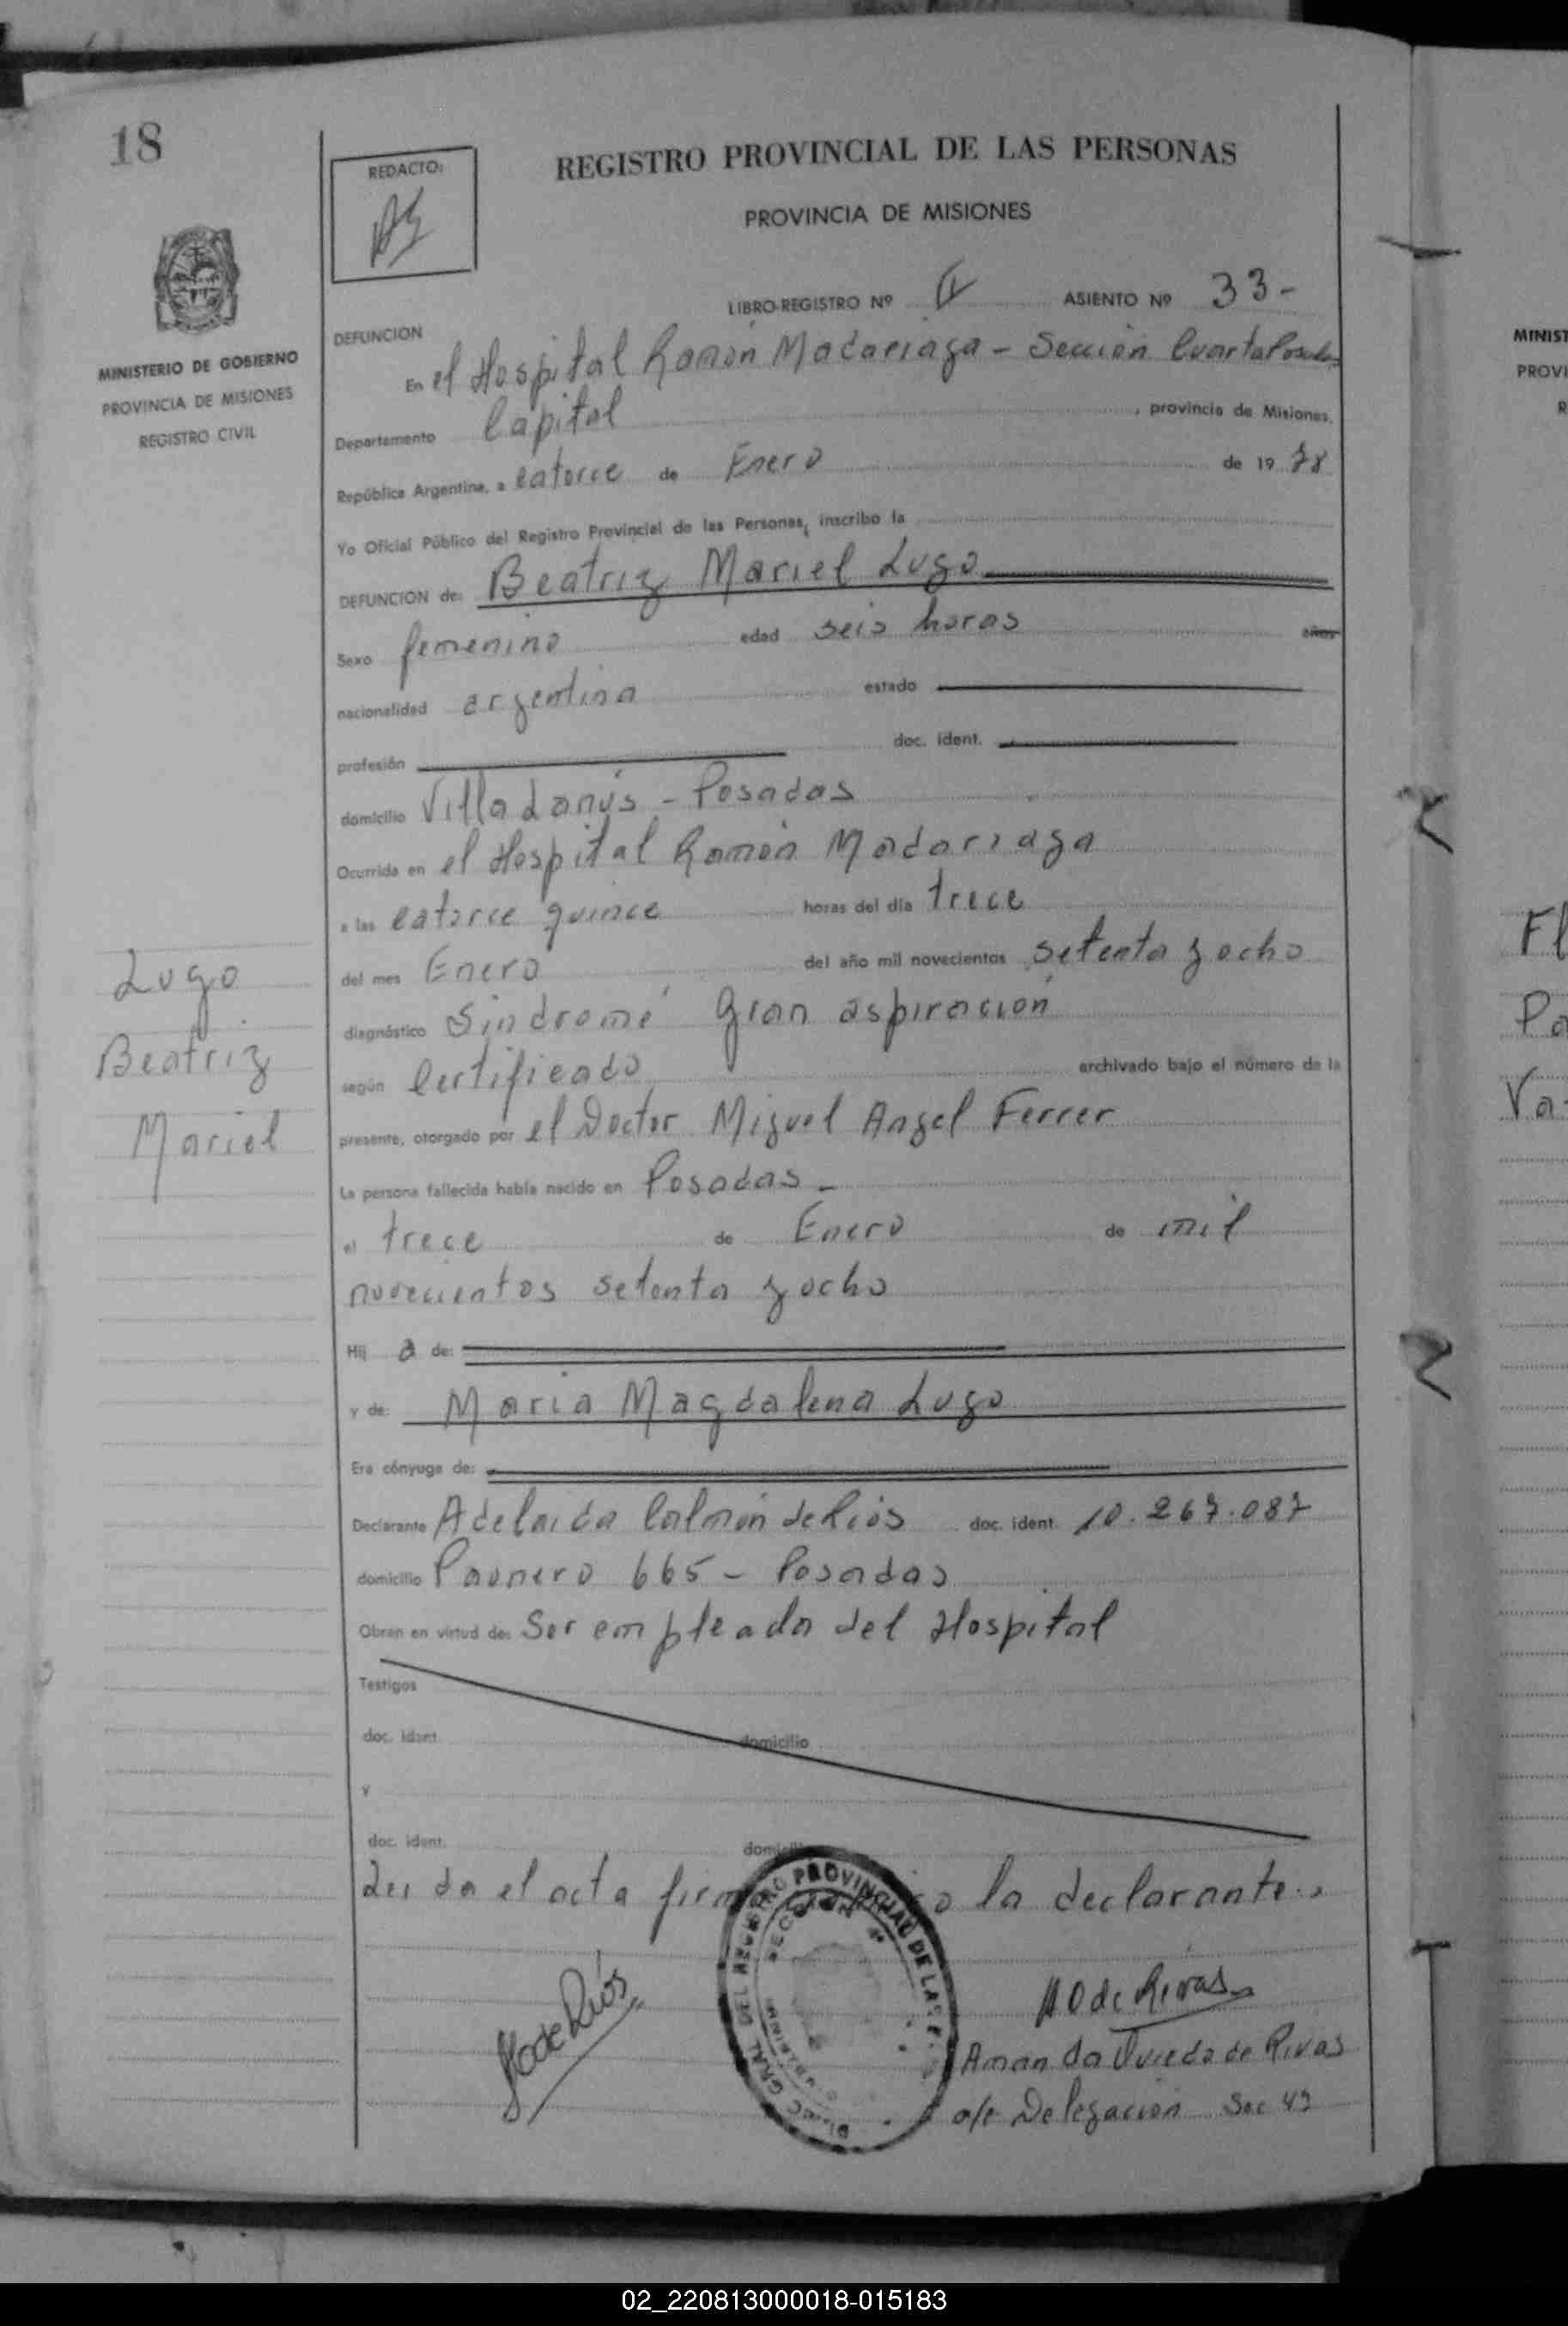 18
REDACTO:
REGISTRO PROVINCIAL DE LAS PERSONAS
PROVINCIA DE MISIONES
LIBRO-REGISTRO Nº ASIENTO Nº 33-
MINISTERIO DE GOBIERNO
PROVINCIA DE MISIONES
REGISTRO CIVIL
DEFUNCION
En el Hospital Ramón Madariaga - Sección Cuarta Posadas
Departamento Capital, provincia de Misiones,
República Argentina, a catorce de Enero de 1978
Yo Oficial Público del Registro Provincial de las Personas, inscribo la
DEFUNCION de: Beatriz Mariel Lugo
Sexo femenino edad seis horas años
nacionalidad argentina estado
profesión doc. ident.
domicilio Villa Lanús - Posadas
Ocurrida en el Hospital Ramón Madariaga
a las catorce quince horas del día trece
del mes Enero del año mil novecientos setenta y ocho
diagnóstico Sindrome Gran aspiración
según Certificado archivado bajo el número de la
presente, otorgado por el Doctor Miguel Angel Ferrer
La persona fallecida había nacido en Posadas -
el trece de Enero de mil
novecientos setenta y ocho
Hij a de:
y de: Maria Magdalena Lugo
Era cónyuge de:
Declarante Adelaida Calmón de Ríos doc. ident. 10.267.087
domicilio Paunero 665 - Posadas
Obran en virtud de: Ser empleada del Hospital
Testigos
doc. ident. domicilio
y
doc. ident. domicilio
Leida el acta la declarante.,
Lugo
Beatriz
Mariel
DEL REGISTRO PROVINCIAL DE LAS
SECCION 4ª
de Ríos
AO de Rivas
Amanda Oviedo de Rivas
a/c Delegación Sec 4ª
MINIST
PROVI
R
Fl
Pa
Va
02_220813000018-015183